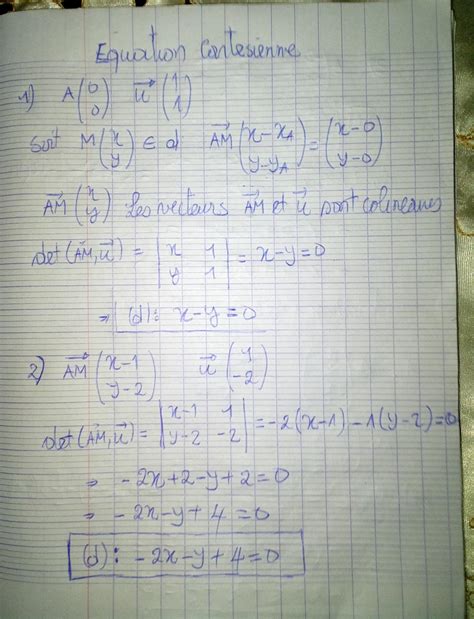 Equation Cartesienne
1) A(0 0) u⃗(1 1)
Soit M(x y) ∈ d AM⃗(x-xA y-yA) = (x-0 y-0)
AM⃗(x y) Les vecteurs AM⃗ et u⃗ sont colineaires
det(AM⃗,u⃗) = |x 1 y 1| = x-y=0
⇒ (d): x-y=0
2) AM⃗(x-1 y-2) u⃗(1 -2)
det(AM⃗,u⃗) = |x-1 1 y-2 -2| = -2(x-1)-1(y-2)=0
⇒ -2x+2-y+2=0
⇒ -2x-y+4=0
(d): -2x-y+4=0